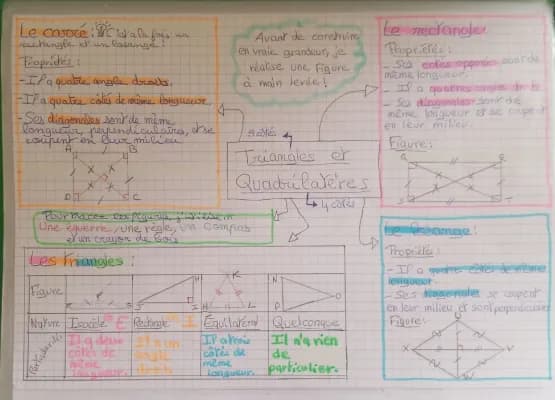 Le carré: il est à la fois un
rectangle et un losange!
Propriétés:
- Il a quatre angle droits.
- Il a quatre côtés de même longueur
- Ses diagonales sont de même
longueur, perpendiculaires, et se
coupent en leur milieu
A B
D C
Avant de construire
en vraie grandeur, je
réalise une figure
à main levée!
Le rectangle
Propriétés:
- Ses côtés opposés sont de
même longueur.
- Il a quatres angles
- Ses diagonales sont de
même longueur et se coupent
en leur milieu.
Figure:
3 côtés
Triangles et
Quadrilatères
4 côtés
Pour tracer les figures, j'utilise
Une équerre, une règle, un compas
et un crayon de bois
Le losange:
Propriétés:
- Il a quatre côtés de même
longueur.
- Ses diagonales se coupent
en leur milieu et sont perpendiculaires
Figure:
Les Triangles:
Figure
Nature Isocèle Rectangle Équilatéral Quelconque
Particularités
Il a deux
côtés de
même
longueur.
Il a un
angle
droit
Il a trois
côtés de
même
longueur.
Il n'a rien
de
particulier.